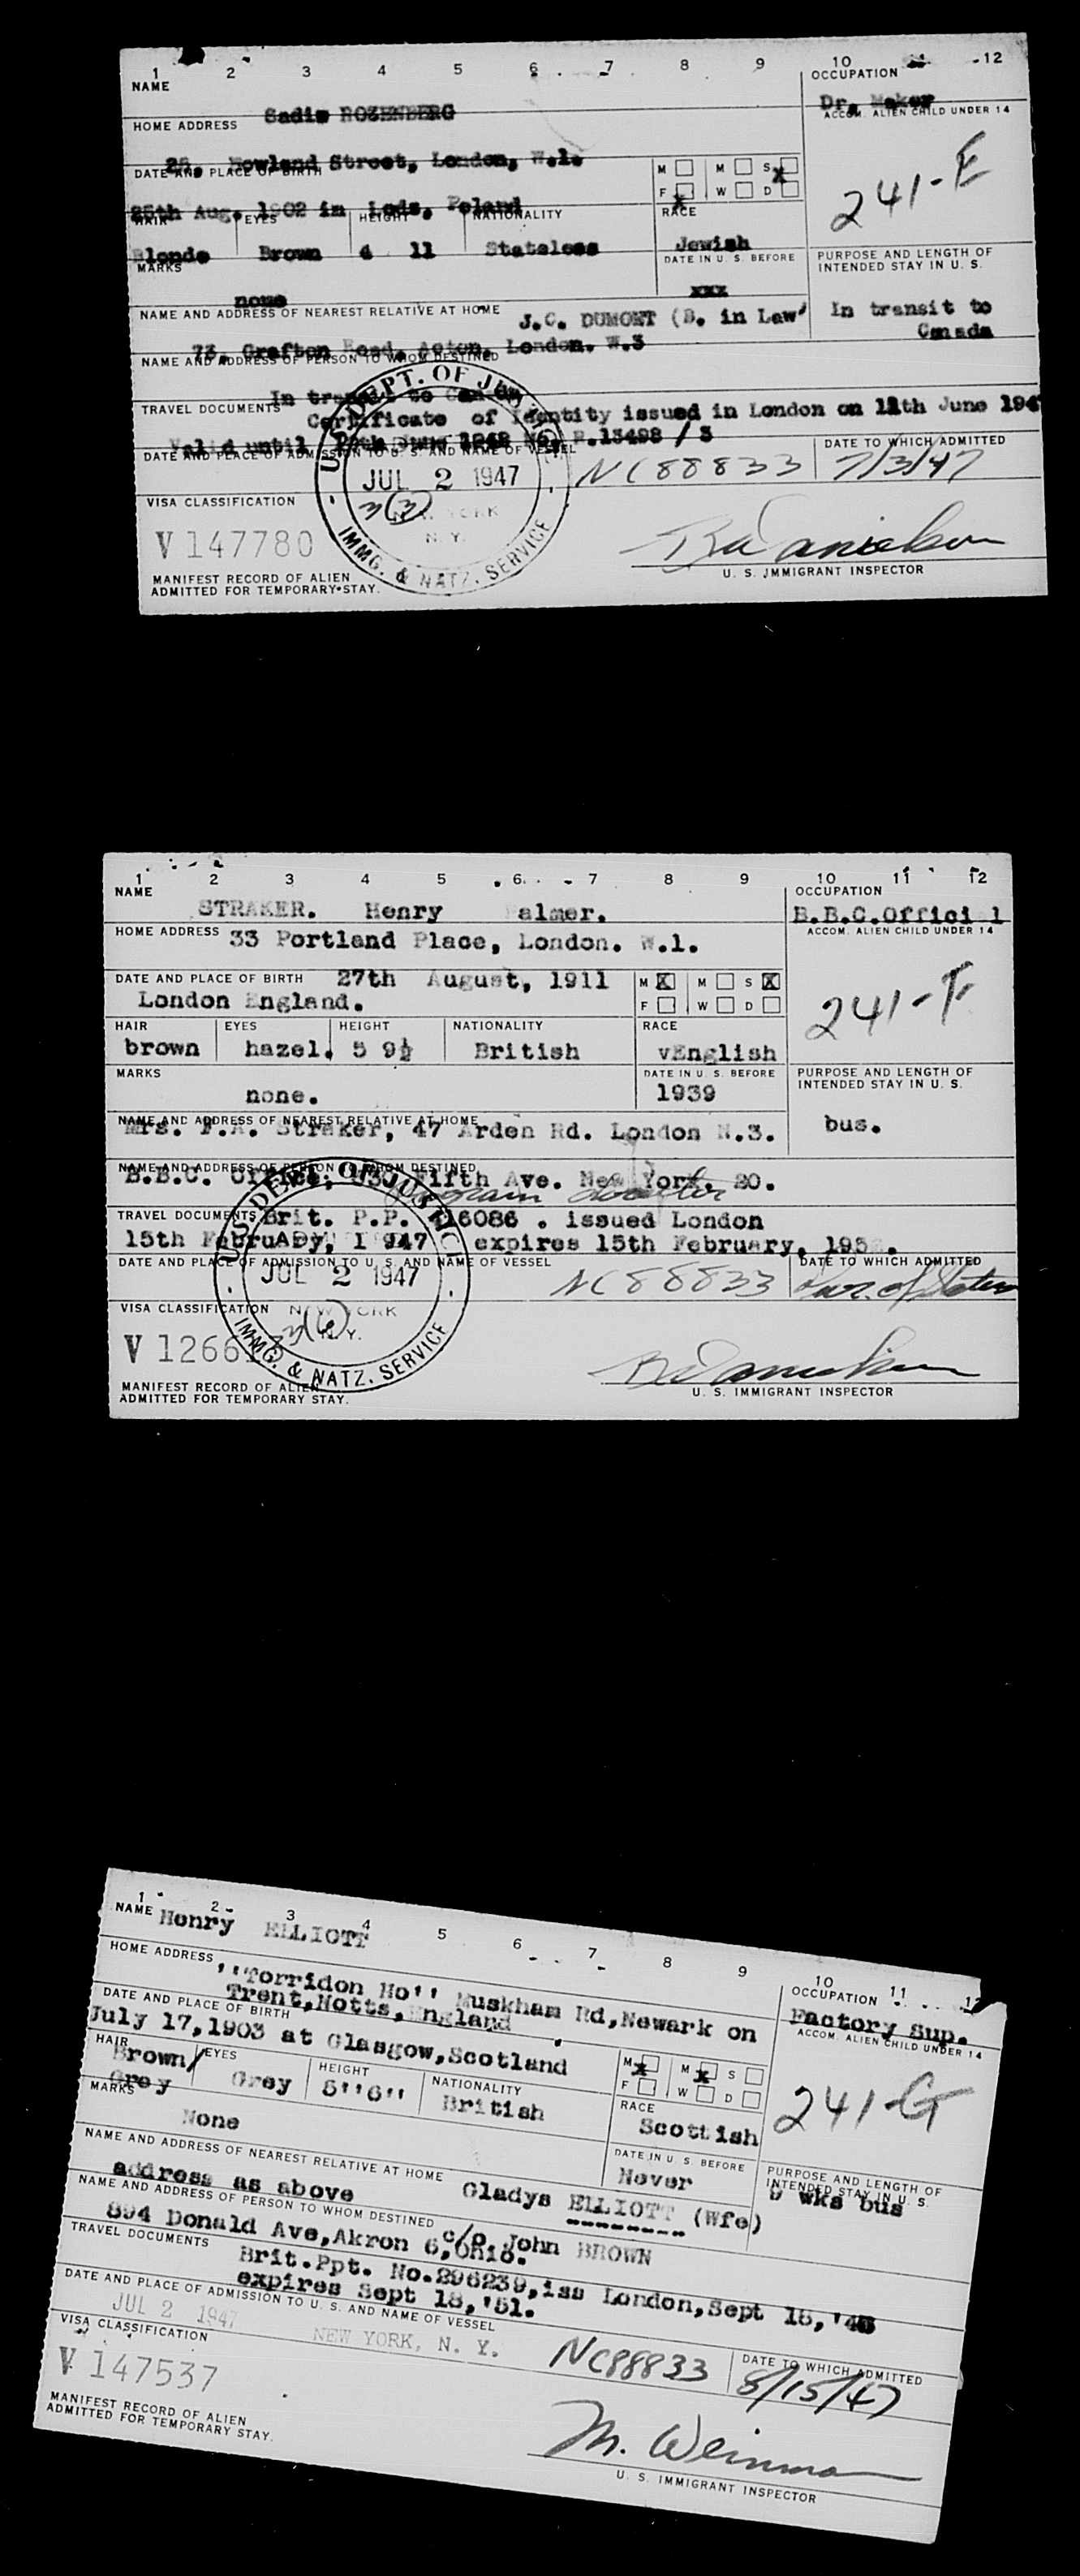 1 2 3 4 5 6 7 8 9 10 11 12
NAME
OCCUPATION
Sadie ROZENBERG
Dr. Maker
HOME ADDRESS
ACCOM. ALIEN CHILD UNDER 14
Howland Street, London, W.1.
DATE AND PLACE OF BIRTH
M M S x
F x W D
241-E
25th Aug. 1902 in Lods, Poland
HAIR EYES HEIGHT NATIONALITY RACE
Blonde Brown 4 11 Stateless Jewish
MARKS
DATE IN U. S. BEFORE
PURPOSE AND LENGTH OF
INTENDED STAY IN U. S.
none
xxx
NAME AND ADDRESS OF NEAREST RELATIVE AT HOME
J.C. DUMONT (B. in Law)
In transit to
Canada
73, Grafton Road, Acton, London. W.3
NAME AND ADDRESS OF PERSON TO WHOM DESTINED
In transit to Canada
TRAVEL DOCUMENTS
Certificate of Identity issued in London on 12th June 194
Valid until 1948 R.13498 / 3
DATE AND PLACE OF ADMISSION TO U. S. AND NAME OF VESSEL
DATE TO WHICH ADMITTED
U.S. DEPT. OF JUSTICE
JUL 2 1947
NC88833
7/3/47
VISA CLASSIFICATION
3(3)
NEW YORK
N. Y.
IMMG. & NATZ. SERVICE
V 147780
U. S. IMMIGRANT INSPECTOR
MANIFEST RECORD OF ALIEN
ADMITTED FOR TEMPORARY STAY.
1 2 3 4 5 6 7 8 9 10 11 12
NAME
OCCUPATION
STRAKER. Henry almer.
B.B.C.Offici l
HOME ADDRESS 33 Portland Place, London. W.1.
ACCOM. ALIEN CHILD UNDER 14
DATE AND PLACE OF BIRTH 27th August, 1911
M X M S X
London England.
F W D
241-F
HAIR EYES HEIGHT NATIONALITY RACE
brown hazel. 5 9½ British vEnglish
MARKS
DATE IN U. S. BEFORE
PURPOSE AND LENGTH OF
INTENDED STAY IN U. S.
none.
1939
NAME AND ADDRESS OF NEAREST RELATIVE AT HOME
Mrs. F.A. Straker, 47 Arden Rd. London N.3.
bus.
NAME AND ADDRESS OF PERSON TO WHOM DESTINED
B.B.C. Office, Fifth Ave. New York. 20.
TRAVEL DOCUMENTS Brit. P.P. 16086 . issued London
15th February, 1 947 expires 15th February, 195 .
DATE AND PLACE OF ADMISSION TO U. S. AND NAME OF VESSEL
DATE TO WHICH ADMITTED
U.S. DEPT. OF JUSTICE
JUL 2 1947
NC88833
VISA CLASSIFICATION
NEW YORK
3(6)
N.Y.
IMMG. & NATZ. SERVICE
V 1266
U. S. IMMIGRANT INSPECTOR
MANIFEST RECORD OF ALIEN
ADMITTED FOR TEMPORARY STAY.
1 2 3 4 5 6 7 8 9 10 11 12
NAME Henry ELLIOTT
OCCUPATION
Factory Sup.
HOME ADDRESS ''Torridon Ho'' Muskham Rd,Newark on
Trent,Notts,England
ACCOM. ALIEN CHILD UNDER 14
DATE AND PLACE OF BIRTH
July 17,1903 at Glasgow,Scotland
M x M x S
F W D
241-G
HAIR EYES HEIGHT NATIONALITY RACE
Brown/
Grey Grey 5''6'' British Scottish
MARKS
None
DATE IN U. S. BEFORE
Never
PURPOSE AND LENGTH OF
INTENDED STAY IN U. S.
wks bus
NAME AND ADDRESS OF NEAREST RELATIVE AT HOME
address as above Gladys ELLIOTT (Wfe)
NAME AND ADDRESS OF PERSON TO WHOM DESTINED c/o. John BROWN
894 Donald Ave,Akron 6,Ohio.
TRAVEL DOCUMENTS Brit.Ppt. No.296239,iss London,Sept 18,'46
expires Sept 18,'51.
DATE AND PLACE OF ADMISSION TO U. S. AND NAME OF VESSEL
JUL 2 1947 NEW YORK, N. Y. NC88833
DATE TO WHICH ADMITTED
8/15/47
VISA CLASSIFICATION
V 147537
M. Weinman
U. S. IMMIGRANT INSPECTOR
MANIFEST RECORD OF ALIEN
ADMITTED FOR TEMPORARY STAY.